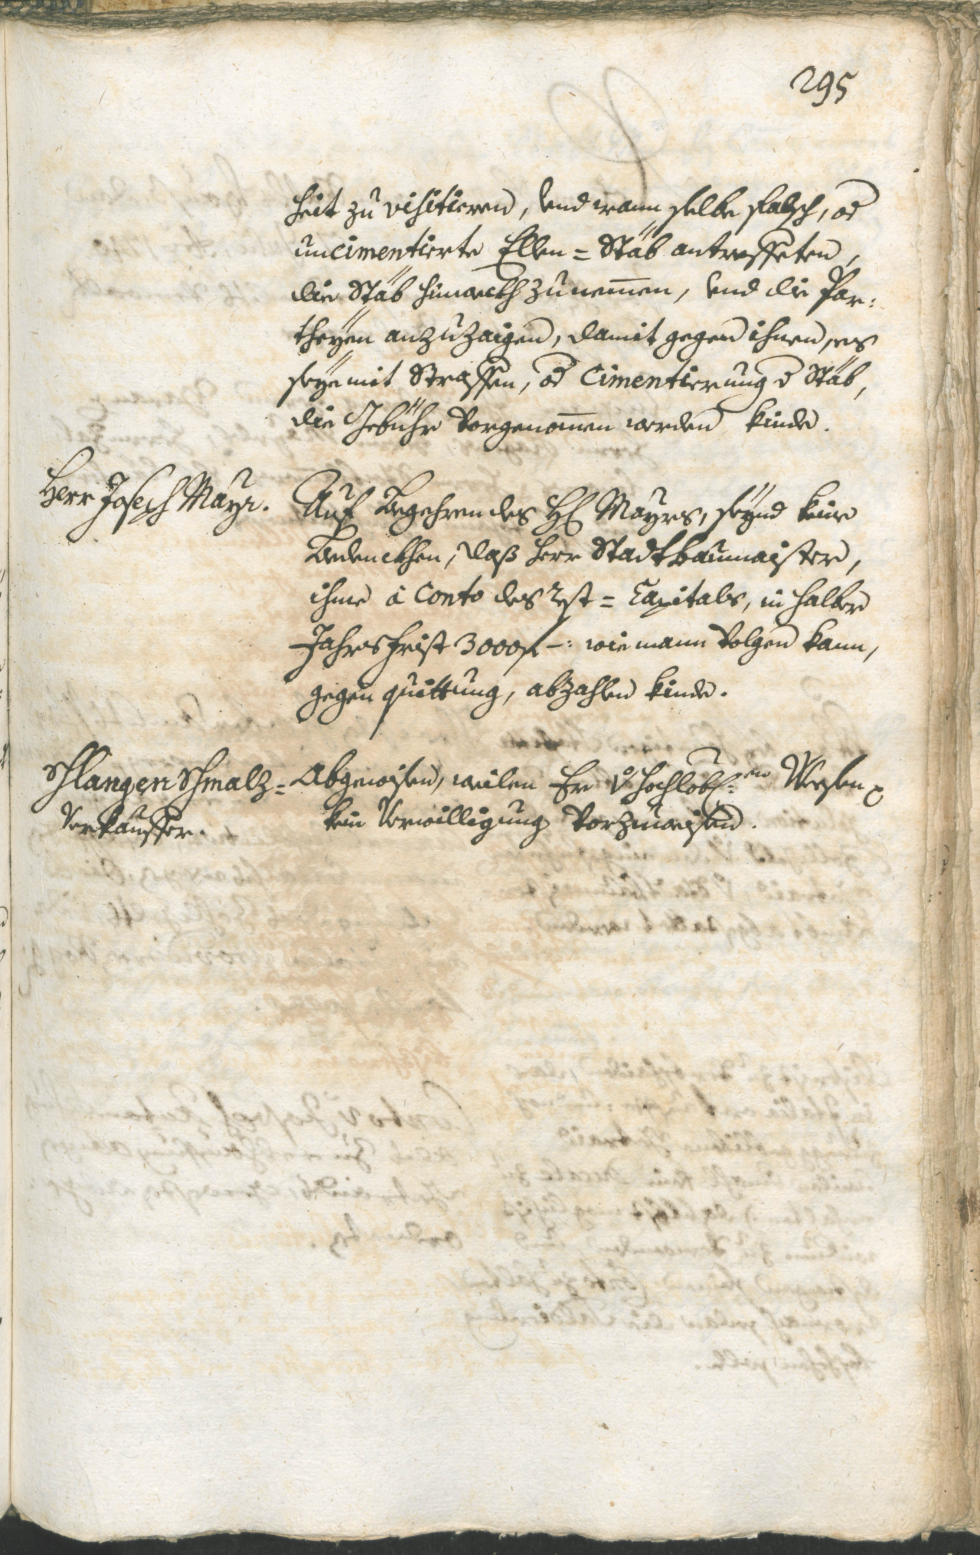 295
heit zu visitieren, vnd wann selbe falsch, od
uncimentierte Ellen=Stäb antreffeten,
die Stäb hinweckh zunemen, vnd die Par:
theyen anzuzaigen, damit gegen ihnen, es
seye mit Straffen, od Cimentierung d Stäb,
die Gebühr vorgenomen werden kinde.
Herr Joseph Mayr.
Auf Begehren des H: Mayrs, seynd keine
Bedenckhen, daß Herr Stadtbaumaister,
ihme à Conto des Rest=Capitals, in halber
Jahrs frist 3000 f –: wie mann volgen kann,
gegen quittung, abzahlen kinde.
Schlangen Schmalz=
Verkauffer.
Abgewisen, weilen Er v hochlöbl:en Weesen
kein Verwilligung vorzuweisen.